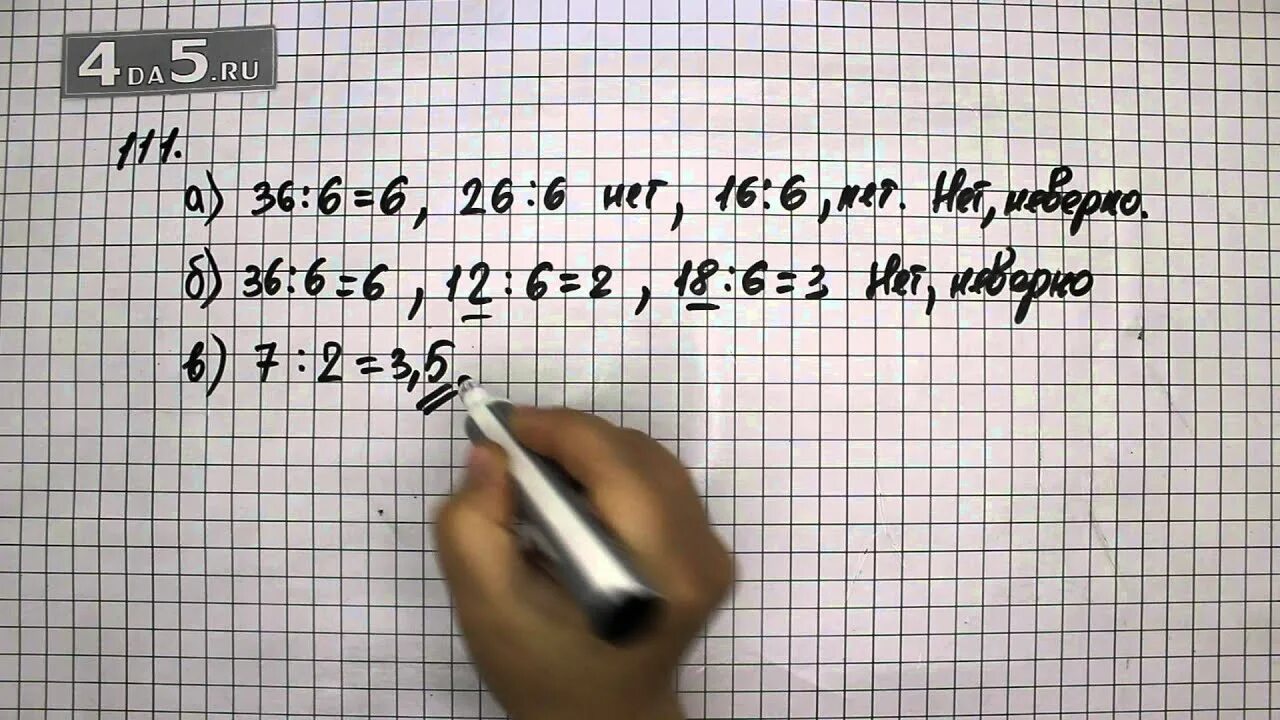 4DA5.RU
111.
а) 36:6=6, 26:6 нет, 16:6, нет. Нет, неверно.
б) 36:6=6, 12:6=2, 18:6=3 Нет, неверно
в) 7:2=3,5